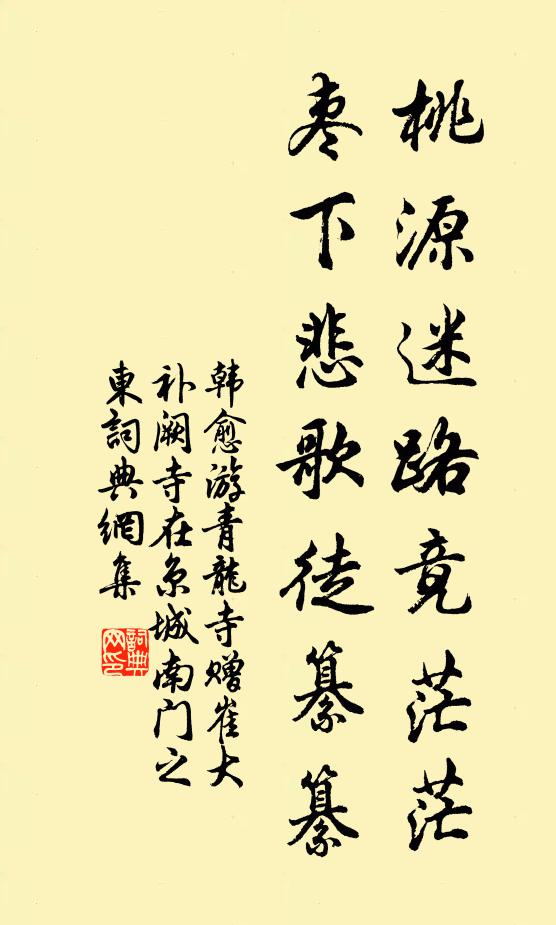 桃源迷路竟茫茫
枣下悲歌徒纂纂
韩愈游青龙寺赠崔大
补阙寺在京城南门之
東詞典網集
詞典网印